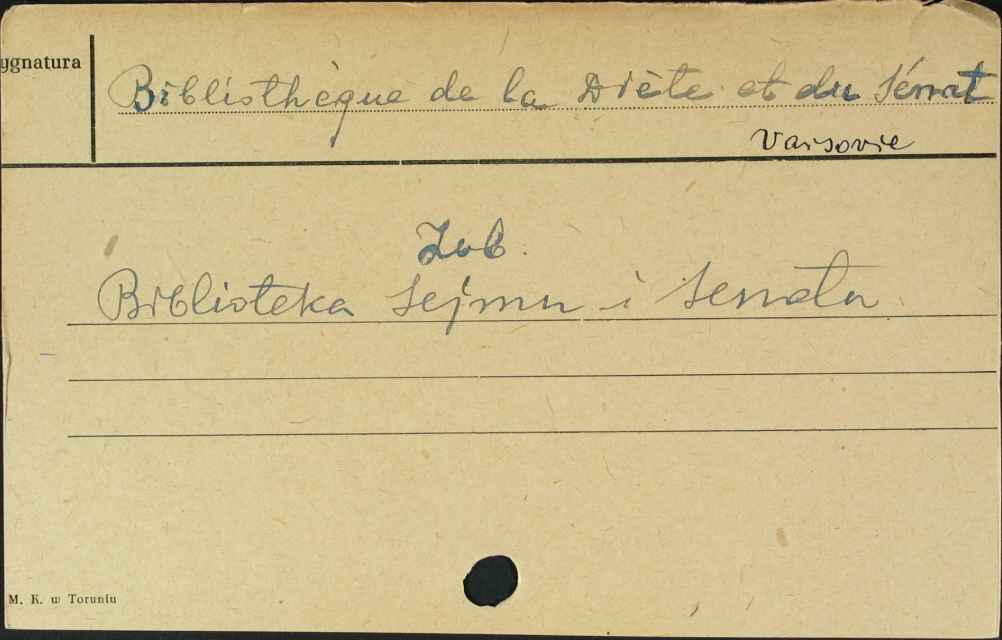 ygnatura
Bibliothèque de la Diète et du Sénat
Varsovie
Zob.
Biblioteka Sejmu i Senatu
M. K. w Toruniu